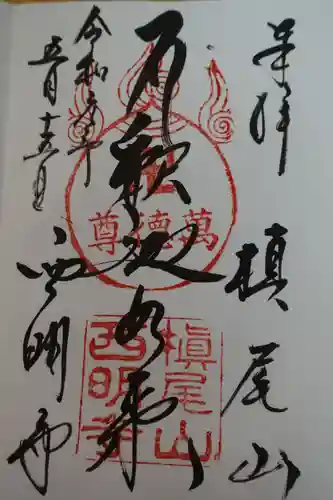 奉拝
槙尾山
釈迦如来
令和年
五月十五日
西明寺
萬德尊
槇尾山
西明寺